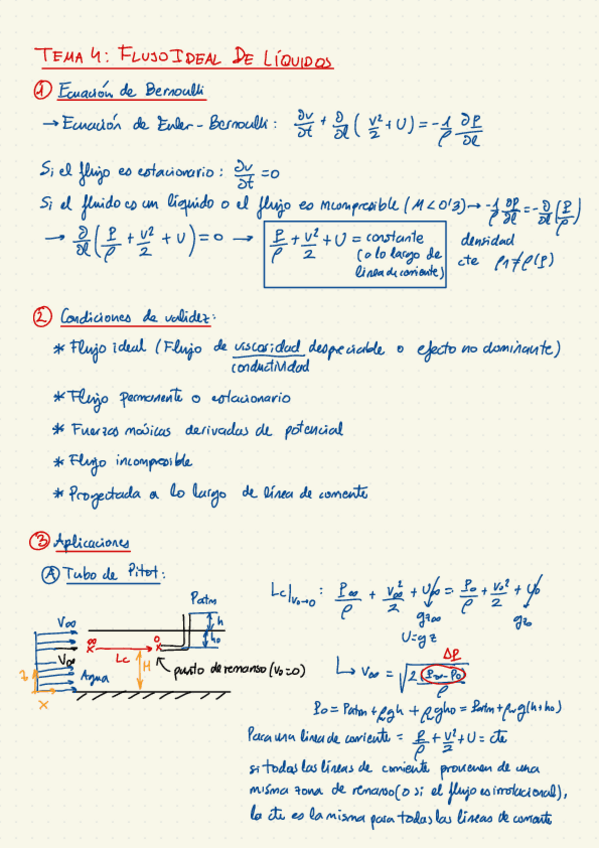 TEMA 4: FLUJO IDEAL DE LÍQUIDOS
① Ecuación de Bernoulli
→ Ecuación de Euler-Bernoulli: ∂v/∂t + ∂/∂l (v²/2 + U) = -1/ρ ∂p/∂l
Si el flujo es estacionario: ∂v/∂t = 0
Si el fluido es un líquido o el flujo es incompresible (M < 0'3) → -1/ρ ∂p/∂l = -∂/∂l (p/ρ)
→ ∂/∂l (p/ρ + v²/2 + U) = 0 → p/ρ + v²/2 + U = constante
(a lo largo de
línea de corriente)
densidad
cte ρ1 ≠ ρ(p)
② Condiciones de validez:
* Flujo ideal (Flujo de viscosidad despreciable o efecto no dominante)
conductividad
* Flujo permanente o estacionario
* Fuerzas másicas derivadas de potencial
* Flujo incompresible
* Proyectada a lo largo de línea de corriente
③ Aplicaciones
Ⓐ Tubo de Pitot:
Patm
h
V∞
h₀
∞
0
V∞
Lc
H
punto de remanso (v₀=0)
z
Agua
x
Lc|v₀→0 : P∞/ρ + v∞²/2 + U∞ = P₀/ρ + v₀²/2 + U₀
gz∞
gz₀
U = gz
Δp
↳ v∞ = √(2(P∞-P₀)/ρ)
P₀ = Patm + ρgh + ρgh₀ = Patm + ρg(h+h₀)
Para una línea de corriente = p/ρ + v²/2 + U = cte
si todas las líneas de corriente provienen de una
misma zona de remanso (o si el flujo es irrotacional),
la cte es la misma para todas las líneas de corriente